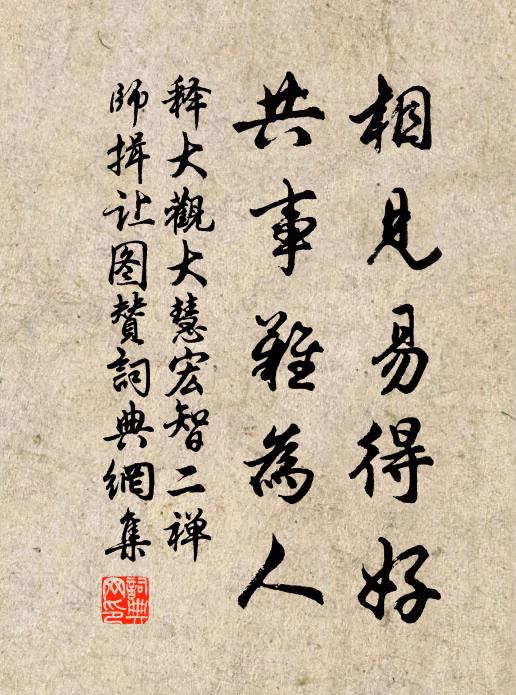 相見易得好
共事難為人
释大觀大慧宏智二禅
師揖让图贊詞典網集